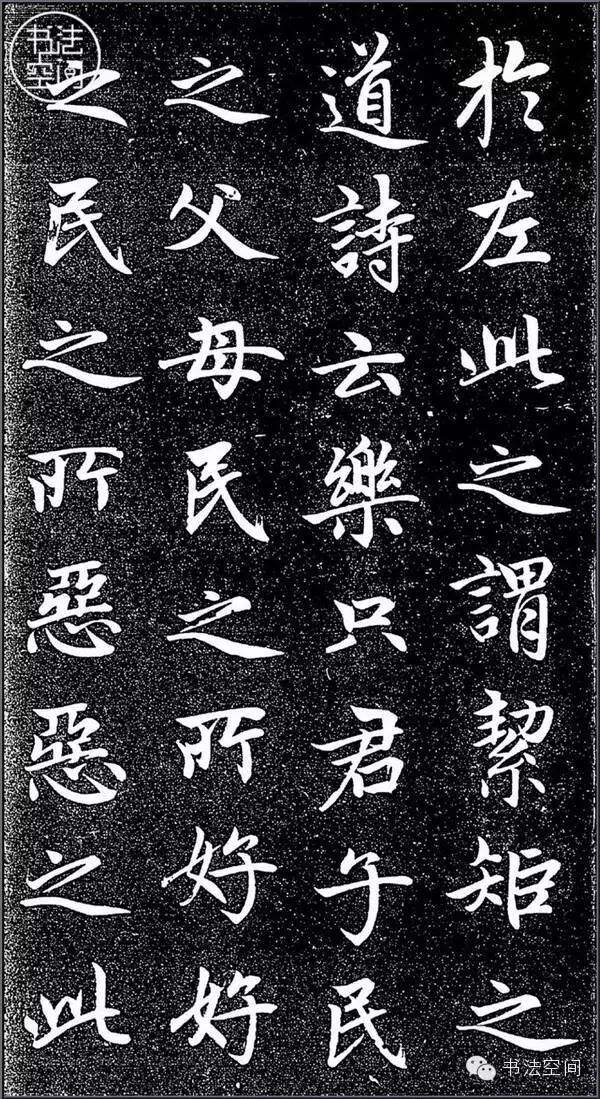 於左此之謂絜矩之
道詩云樂只君子民
之父母民之所好好
之民之所惡惡之此
书法
空间
书法空间